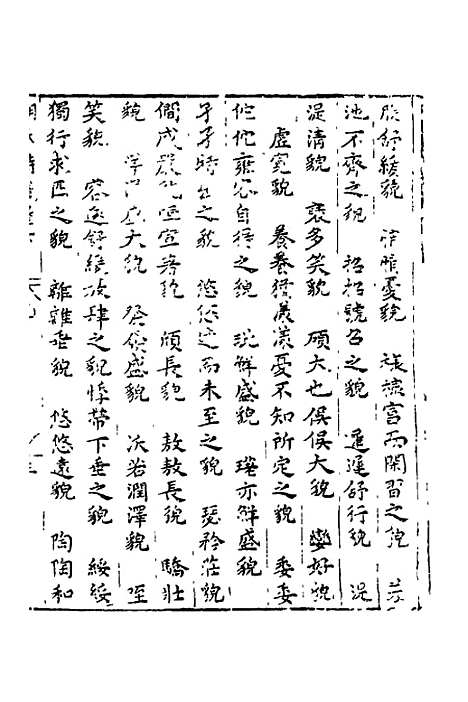 脫舒緩貌 悄悄憂貌 棣棣富而閑習之貌 差
池不齊之貌 招招號召之貌 遲遲舒行貌 湜
湜清貌 褎多笑貌 碩大也俁俁大貌 孌好貌
虛寬貌 養養猶漾漾憂不知所定之貌 委委
佗佗雍容自得之貌 玼鮮盛貌 瑳亦鮮盛貌
孑孑特出之貌 悠悠遠而未至之貌 瑟矜莊貌
僩威嚴貌咺宣著貌 頎長貌 敖敖長貌 驕壯
貌 洋洋盛大貌 發發盛貌 沃若潤澤貌 咥
笑貌 容遂舒緩放肆之貌悸帶下垂之貌 綏綏
獨行求匹之貌 離離垂貌 悠悠遠貌 陶陶和